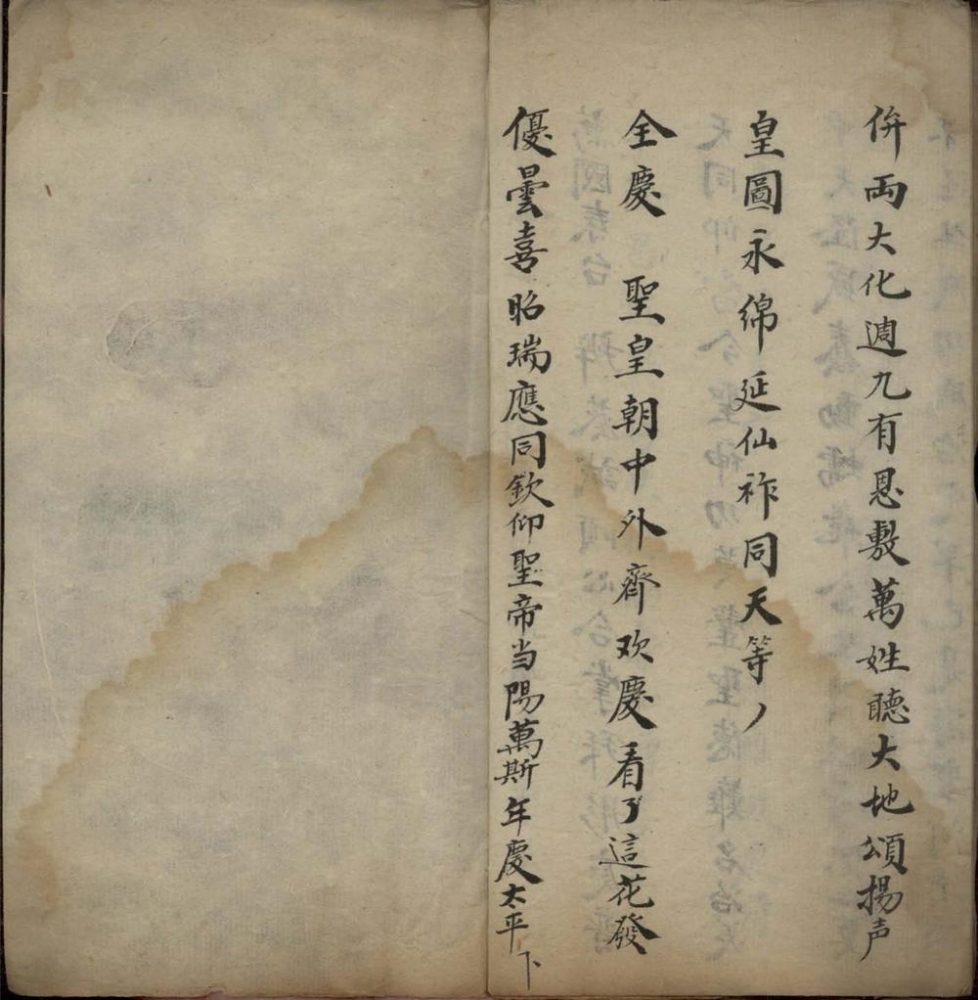 俻両大化週九有恩敷萬姓聽大地頌揚声
皇圖永綿延仙祚同天等丿
全慶　聖皇朝中外齊欢慶看了這花發
優曇喜昭瑞應同欽仰聖帝当陽萬斯年慶太平下